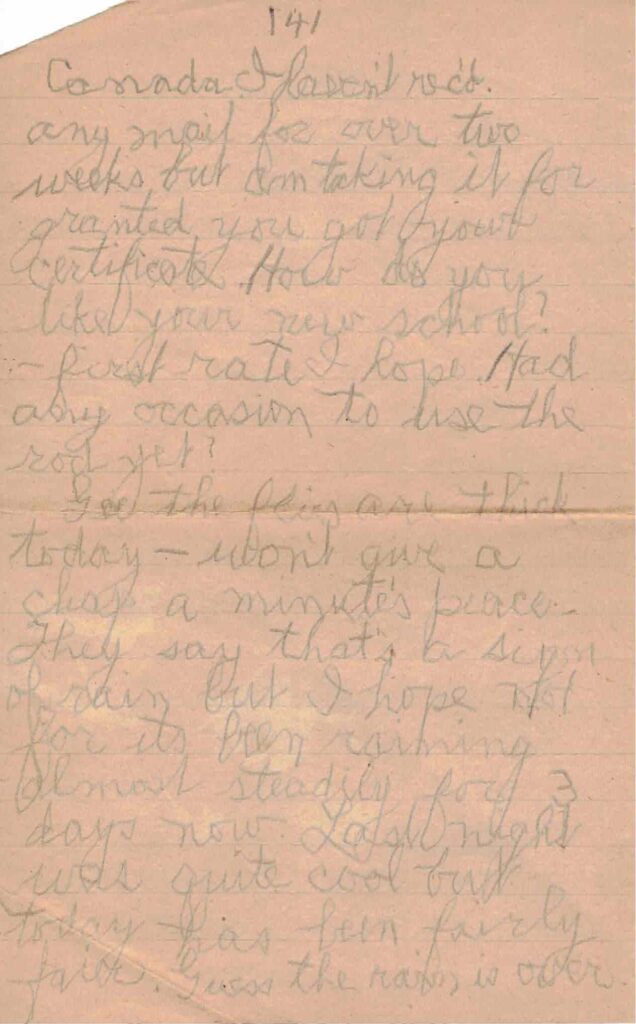 141
Canada. I haven't rec'd.
any mail for over two
weeks, but Im taking it for
granted you got your
certificate. How do you
like your new school?
- first rate I hope. Had
any occasion to use the
rod yet?
Gee the flies are thick
today - won't give a
chap a minute's peace -
They say that's a sign
of rain but I hope not
for its been raining
almost steadily for 3
days now. Last night
was quite cool but
today has been fairly
fair. Guess the rain is over